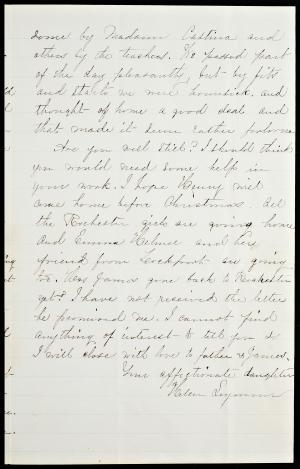 some by Madam Castina and
others by the teachers. We passed part
of the day pleasantly, but by fits
and starts we were homesick, and
thought of home a good deal and
that made it seem rather forlorn.
Are you well Still? I should think
you would need some help in
your work. I hope Henry will
come home before Christmas. All
the Rochester girls are going home
and Emma and her
friend from Lockport are going
too. Has James gone back to Rochester
yet? I have not received the letter
he promised me. I cannot find
anything of interest to tell you &
I will close with love to father & James.
Your affectionate daughter
Helen Seymour